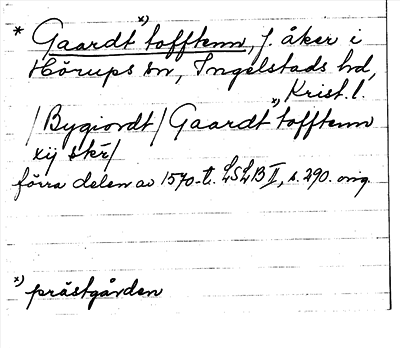 * Gaardt x) tofftenn, f. åker i
Hörups sn, Ingelstads hd,
Krist. l.
/Bygiordt/ Gaardt x) tofftenn
xij skr/
förra delen av 1570-t. LSLB II, s. 290. orig.
x) prästgården